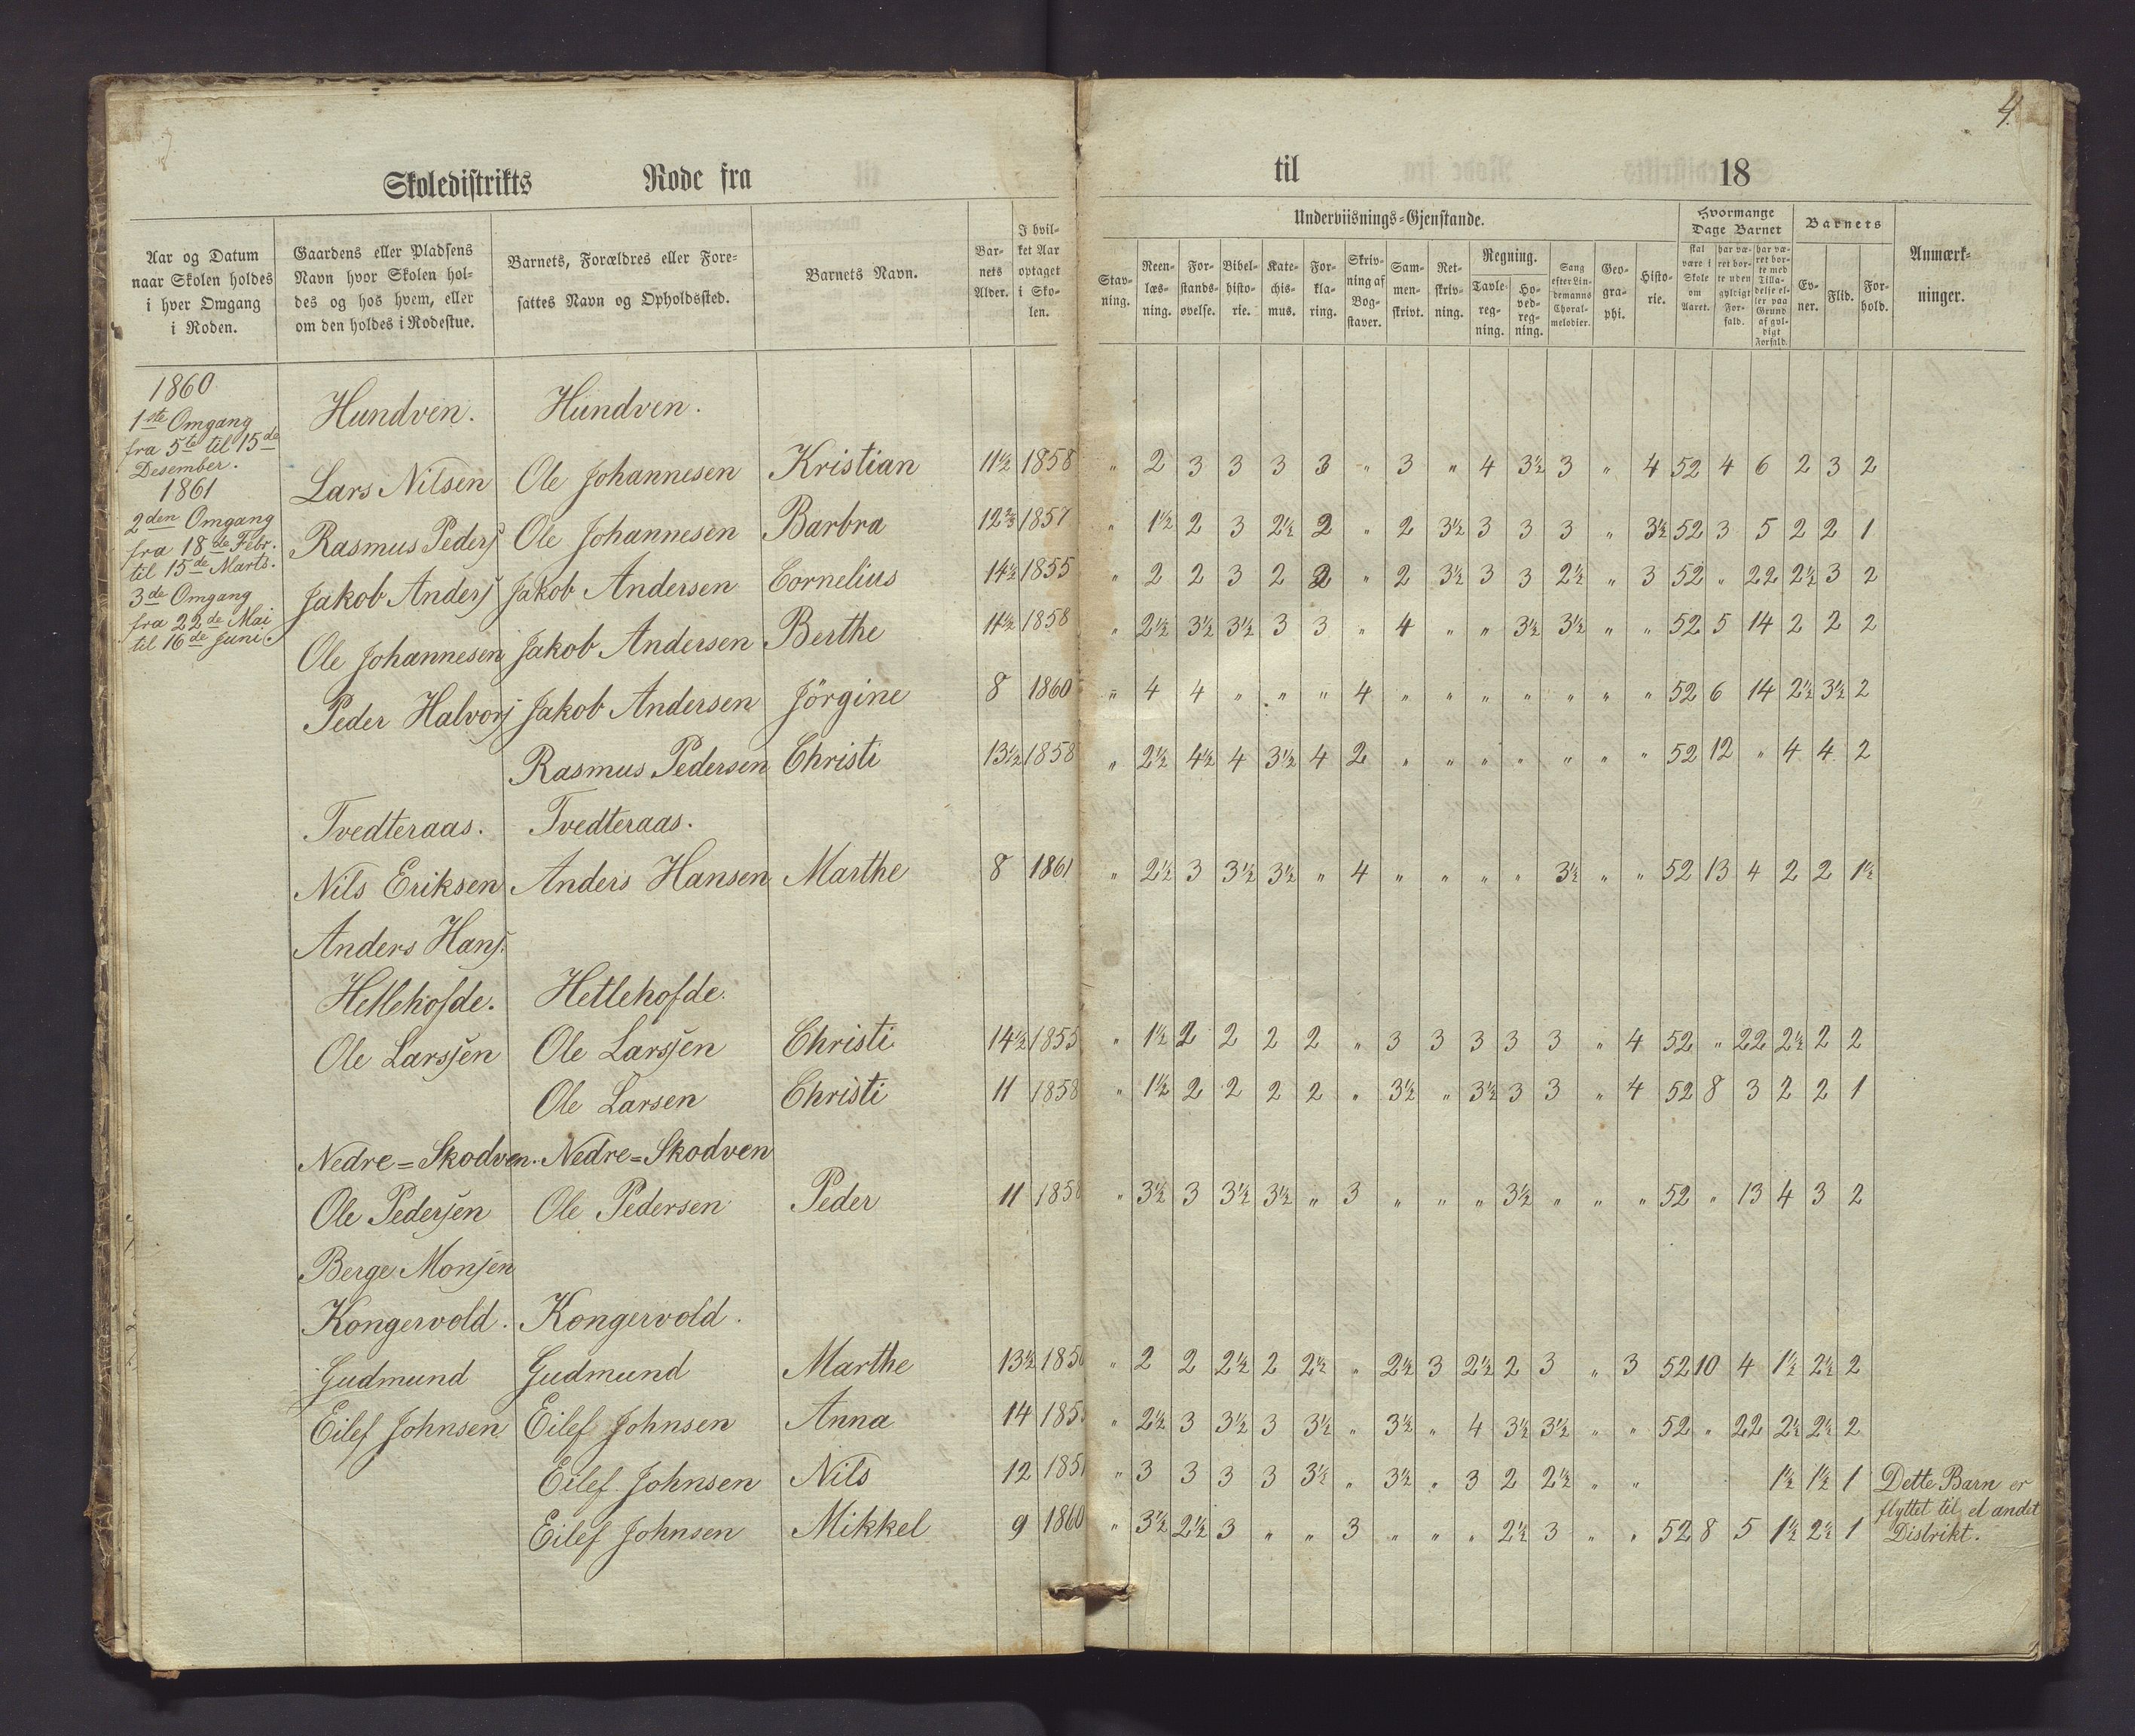 4.
Skoledistrikts Rode fra til 18
Aar og Datum naar Skolen holdes i hver Omgang i Roden.
Gaardens eller Pladsens Navn hvor Skolen holdes og hos hvem, eller om den holdes i Rodestue.
Barnets, Forældres eller Foresattes Navn og Opholdssted.
Barnets Navn.
Barnets Alder.
I hvilket Aar optaget i Skolen.
Underviisnings-Gjenstande.
Stavning.
Reenlæsning.
Forstandsøvelse.
Bibelhistorie.
Katechismus.
Forklaring.
Skrivning af Bogstaver.
Sammenskrivt.
Retskrivning.
Regning.
Tavleregning.
Hovedregning.
Sang efter Lindemanns Choralmelodier.
Geographi.
Historie.
Hvormange Dage Barnet
skal være i Skole om Aaret.
har været borte uden gyldigt Forfald.
har været borte med Tilladelse eller paa Grund af gyldigt Forfald.
Barnets
Evner.
Flid.
Forhold.
Anmærkninger.
1860
1ste Omgang
fra 5te til 15de
Desember.
1861
2den Omgang
fra 18de Febr.
til 15de Marts.
3de Omgang
fra 22de Mai
til 16de Juni.
Hundven. Hundven.
Lars Nilsen Ole Johannesen Kristian 11½ 1858 " 2 3 3 3 3 " 3 " 4 3½ 3 " 4 52 4 6 2 3 2
Rasmus Peders Ole Johannesen Barbra 12⅔ 1857 " 1½ 2 3 2½ 2 " 2 3½ 3 3 3 " 3½ 52 3 5 2 2 1
Jakob Anders Jakob Andersen Cornelius 14½ 1855 " 2 2 3 2 2 " 2 3½ 3 3 2½ " 3 52 " 22 2½ 3 2
Ole Johannesen Jakob Andersen Berthe 11½ 1858 " 2½ 3½ 3½ 3 3 " 4 " " 3½ 3½ " " 52 5 14 2 2 2
Peder Halvors Jakob Andersen Jörgine 8 1860 " 4 4 " " " 4 " " " " " " " 52 6 14 2½ 3½ 2
Rasmus Pedersen Christi 13½ 1858 " 2½ 4½ 4 3½ 4 2 " " " " " " " 52 12 " 4 4 2
Tvedteraas. Tvedteraas.
Nils Eriksen Anders Hansen Marthe 8 1861 " 2½ 3 3½ 3½ " 4 " " " " 3½ " " 52 13 4 2 2 1½
Anders Hans.
Hetlehofde. Hetlehofde.
Ole Larssen Ole Larssen Christi 14½ 1855 " 1½ 2 2 2 2 " 3 3 3 3 3 " 4 52 " 22 2½ 2 2
Ole Larsen Christi 11 1858 " 1½ 2 2 2 2 " 3½ " 3½ 3 3 " 4 52 8 3 2 2 1
Nedre=Skodven. Nedre=Skodven
Ole Pedersen Ole Pedersen Peder 11 1858 " 3½ 3 3½ 3½ " 3 " " " 3½ " " " 52 " 13 4 3 2
Berge Monsen
Kongervold. Kongervold.
Gudmund Gudmund Marthe 13½ " 2 2 2½ 2 2½ " 2½ 3 2½ 2 3 " 3 52 10 4 1½ 2½ 2
Eilef Johnsen Eilef Johnsen Anna 14 " 2½ 3 3½ 3 3½ " 3½ " 4 3½ 3½ " " 52 " 22 2½ 2½ 2
Eilef Johnsen Nils 12 " 3 3 3 3 3½ " 3½ " 3 2 2½ " " 1½ 1½ 1 Dette Barn er
flyttet til et andet
Eilef Johnsen Mikkel 9 1860 " 3½ 2½ 3 " " 3 " " " 2½ 3 " " 52 8 5 1½ 2½ 1 Distrikt.